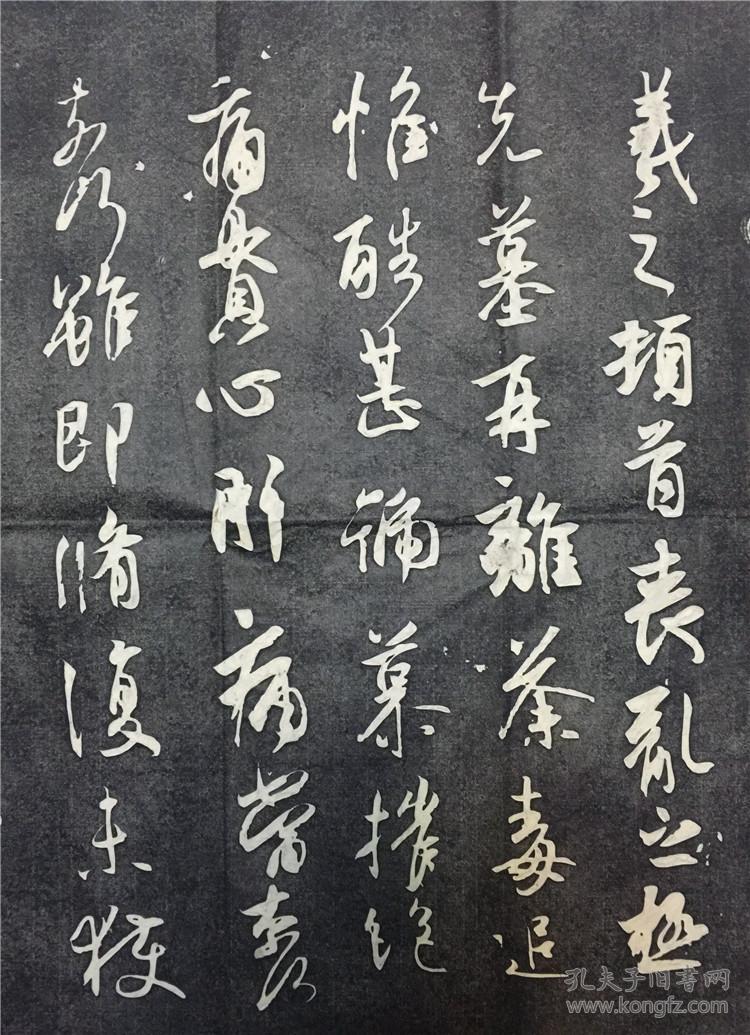 羲之頓首喪亂之極
先墓再離荼毒追
惟酷甚號慕摧絕
痛貫心肝痛當奈何
奈何雖即脩復未獲
孔夫子旧书网
www.kongfz.com